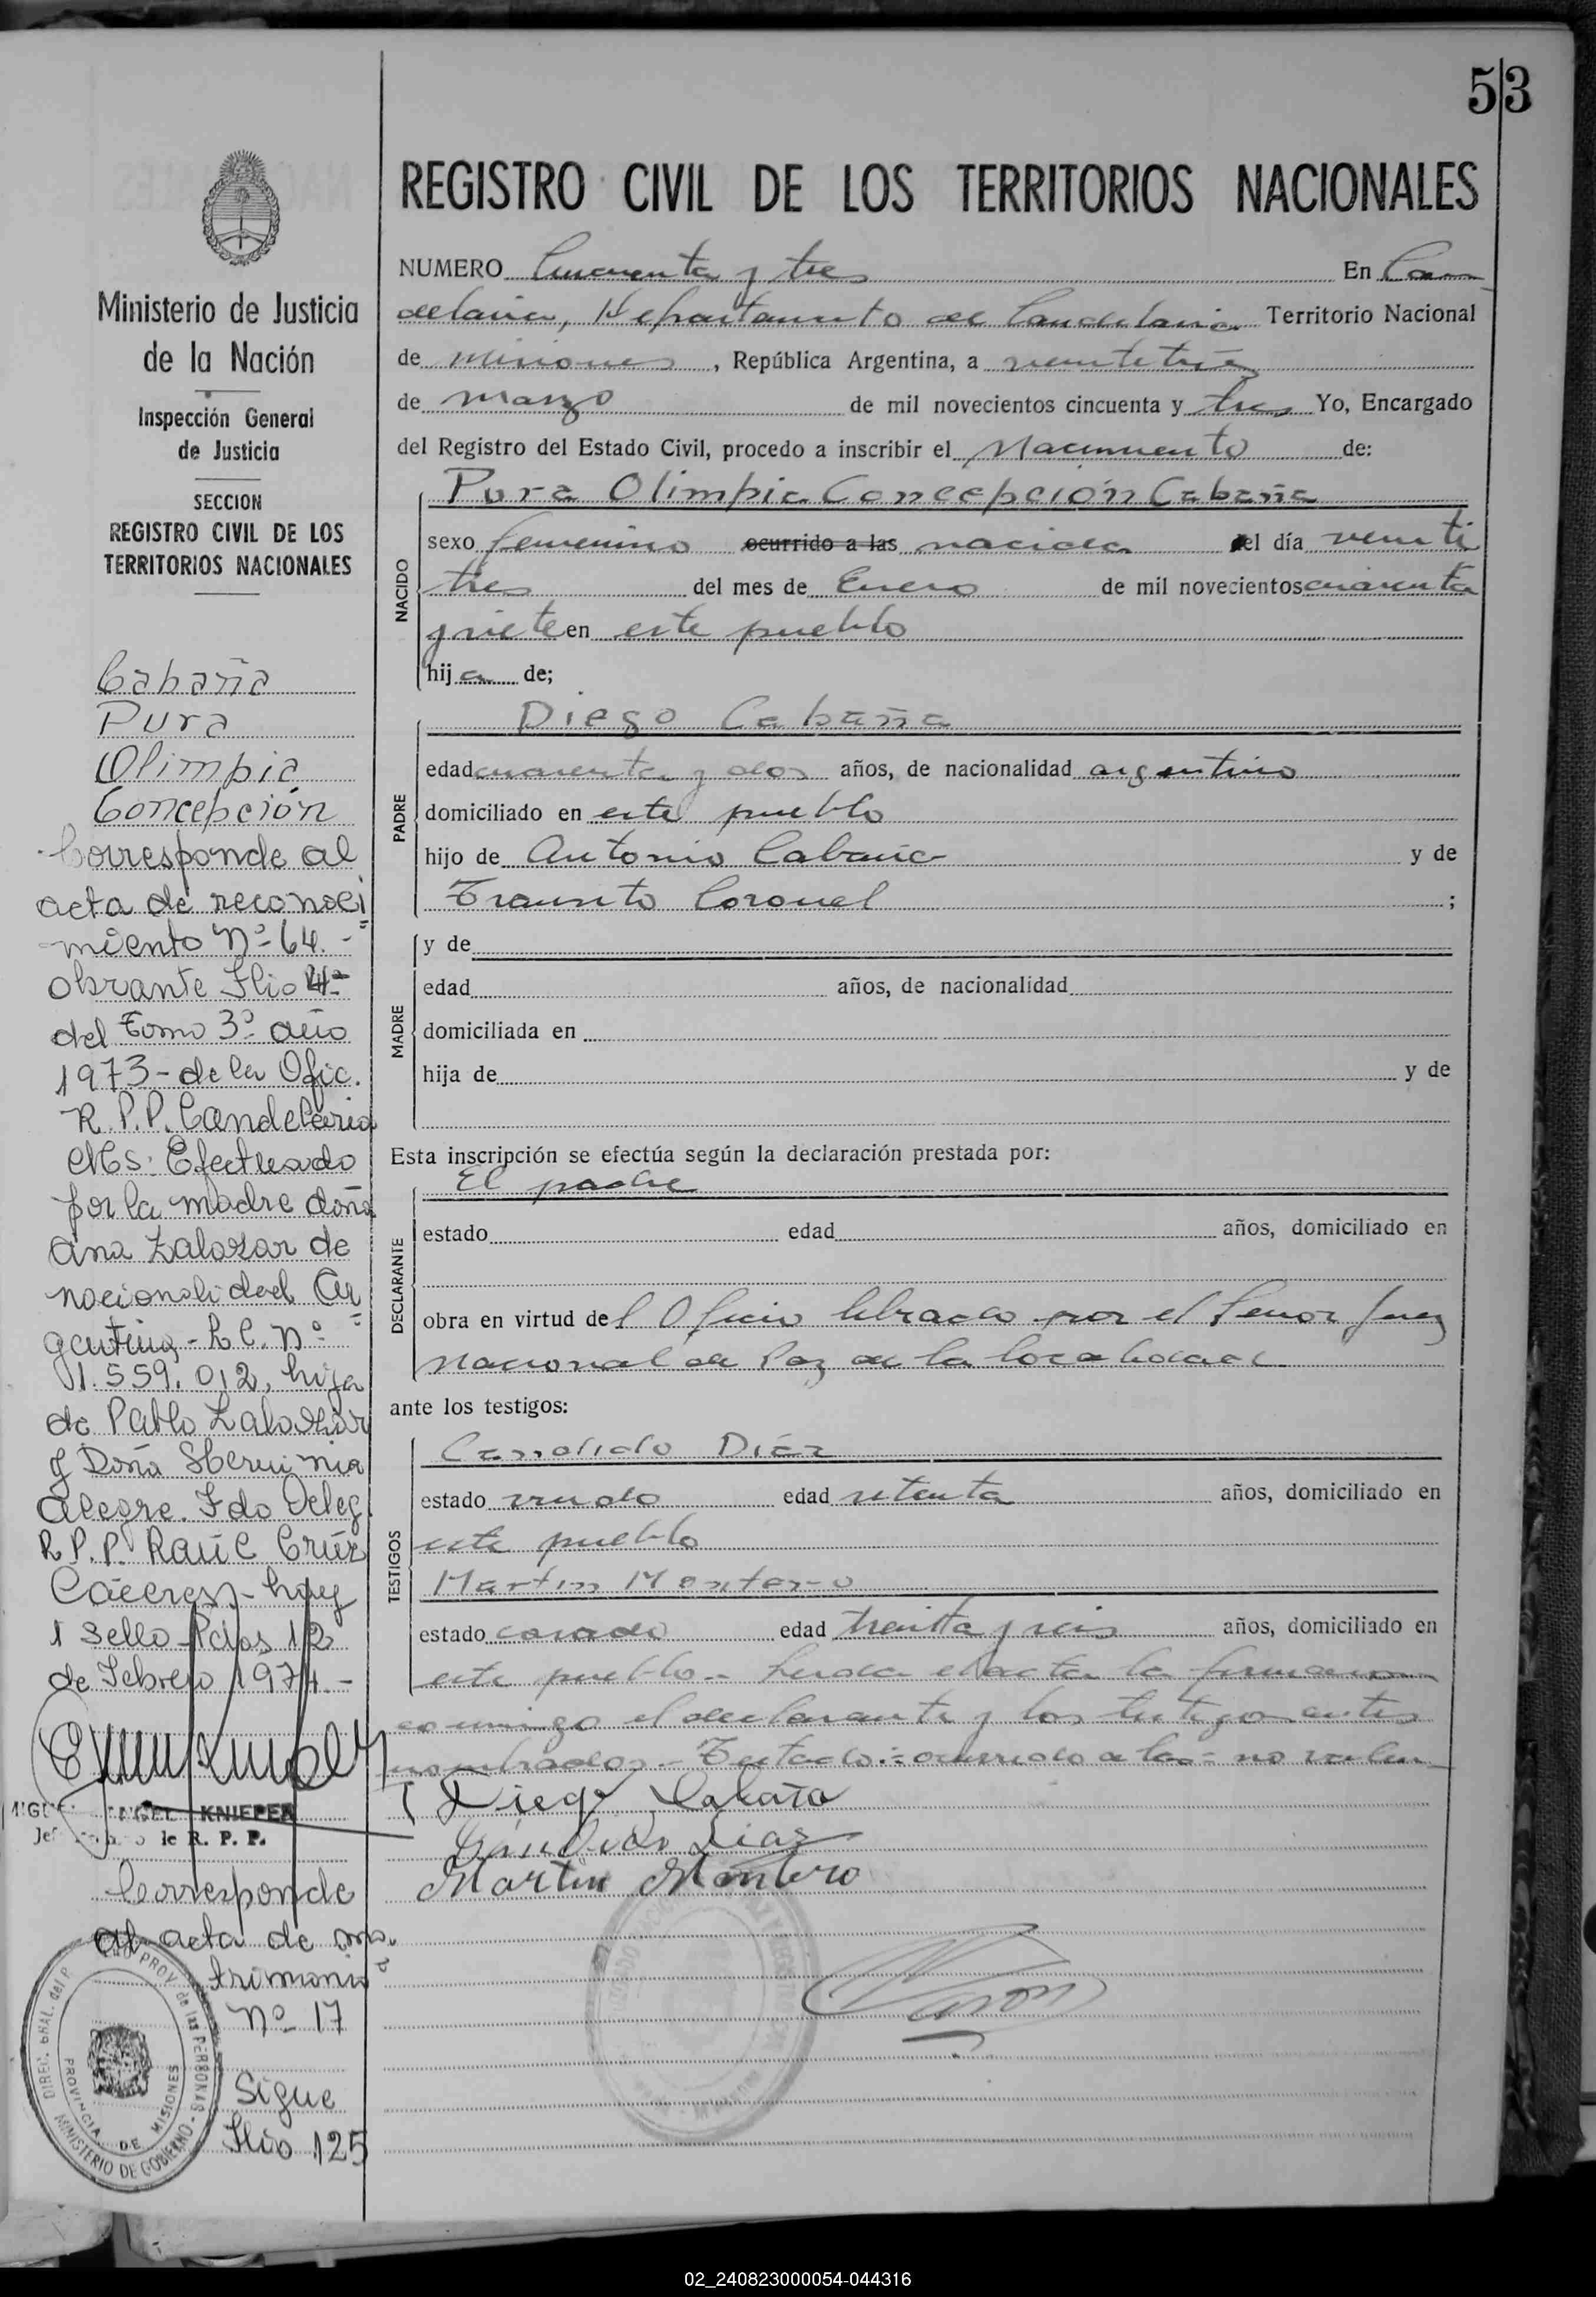 53
REGISTRO CIVIL DE LOS TERRITORIOS NACIONALES
NUMERO Cincuenta y tres En Can-
delaria, Departamento de Candelaria Territorio Nacional
de Misiones, República Argentina, a veintitrés
de marzo de mil novecientos cincuenta y tres Yo, Encargado
del Registro del Estado Civil, procedo a inscribir el Nacimiento de:
NACIDO
Pura Olimpia Concepción Cabaña
sexo femenino ocurrido a las nacida el día veinti
tres del mes de Enero de mil novecientos cuarenta
y siete en este pueblo
hija de;
PADRE
Diego Cabaña
edad cuarenta y dos años, de nacionalidad argentino
domiciliado en este pueblo
hijo de Antonio Cabaña y de
Transito Coronel ;
MADRE
y de
edad años, de nacionalidad
domiciliada en
hija de y de
Esta inscripción se efectúa según la declaración prestada por:
DECLARANTE
El padre
estado edad años, domiciliado en
obra en virtud del Oficio librado por el Señor Juez
Nacional de Paz de la localidad
ante los testigos:
TESTIGOS
Candido Díaz
estado viudo edad setenta años, domiciliado en
este pueblo
Martín Montero
estado casado edad treinta y seis años, domiciliado en
este pueblo.- Leida el acta la firmaron
conmigo el declarante y los testigos antes
nombrados.- Testado:=ocurrido a las= no valen
Diego Cabaña
Candido Diaz
Martin Montero
Ministerio de Justicia
de la Nación
Inspección General
de Justicia
SECCION
REGISTRO CIVIL DE LOS
TERRITORIOS NACIONALES
Cabaña
Pura
Olimpia
Concepción
Corresponde al
acta de reconoci
miento Nº 64.-
obrante Flio 4
del Tomo 3º año
1973- de la Ofic.
R.P.P. Candelaria
Mcs. Efectuado
por la madre doña
Ana Zalazar de
nacionalidad Ar
gentina - L.C. Nº
1.559.012, hija
de Pablo Zalazar
y Doña Herminia
Alegre. Fdo Deleg.
R.P.P. Raúl Cruz
Cáceres - hay
1 sello Pdas 12
de Febrero 1974.-
ANGEL KNIEPER
de R. P. P.
Corresponde
al acta de ma
trimonio
Nº 17
Sigue
Flio 125
DIREC. GRAL. del R. PROV. de las PERSONAS
MINISTERIO DE GOBIERNO
PROVINCIA DE MISIONES
02_240823000054-044316